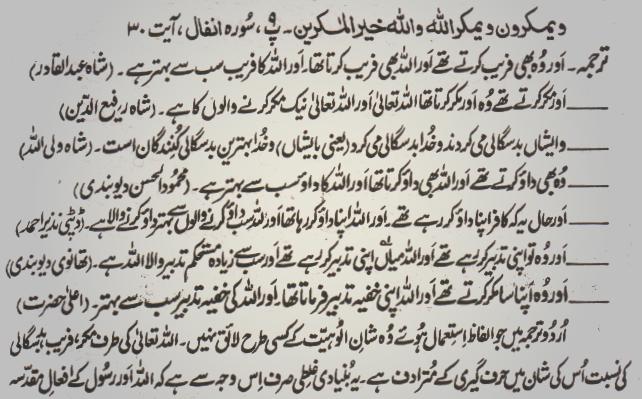 ویمکرون ویمکر اللہ واللہ خیر الماکرین۔ پ ۹، سُورہ انفال، آیت ۳۰
ترجمہ۔ اَور وُہ بھی فریب کرتے تھے اَور اللہ بھی فریب کرتا تھا۔ اَور اللہ کا فریب سب سے بہتر ہے۔ (شاہ عبدالقادر)
اَور مکر کرتے تھے وُہ اَور مکر کرتا تھا اللہ تعالیٰ اَور اللہ تعالیٰ نیک مکر کرنے والوں کا ہے۔ (شاہ رفیع الدّین)
وایشاں بدسگالی می کردند وخُدا بدسگالی می کرد (یعنی بایشاں) وخُدا بہترین بدسگالی کُنندگان است۔ (شاہ ولی اللہ)
وُہ بھی داؤ کرتے تھے اَور اللہ بھی داؤ کرتا تھا اَور اللہ کا داؤ سب سے بہتر ہے۔ (محمُود الحسن دیوبندی)
اَور حال یہ کہ کافر اپنا داؤ کر رہے تھے۔ اَور اللہ اپنا داؤ کر رہا تھا اَور اللہ سب داؤ کرنے والوں سے بہتر داؤ کرنے والا ہے۔ (ڈپٹی نذیر احمد)
اَور وُہ تو اپنی تدبیر کر رہے تھے اَور اللہ میاں اپنی تدبیر کر رہے تھے اَور سب سے زیادہ مستحکم تدبیر والا اللہ ہے۔ (تھانوی دیوبندی)
اَور وُہ اپنا سا مکر کرتے تھے اَور اللہ اپنی خفیہ تدبیر فرماتا تھا۔ اَور اللہ کی خفیہ تدبیر سب سے بہتر۔ (اعلیٰ حضرت)
اُردُو ترجمہ میں جو الفاظ اِستعمال ہُوئے وُہ شانِ اُلوہیّت کے کسی طرح لائق نہیں۔ اللہ تعالیٰ کی طرف مکر، فریب، بدسگالی
کی نسبت اُس کی شان میں حرف گیری کے مُترادف ہے۔ یہ بُنیادی غلطی صرف اِس وجہ سے ہے کہ اللہ اَور رسُول کے افعالِ مقدّسہ